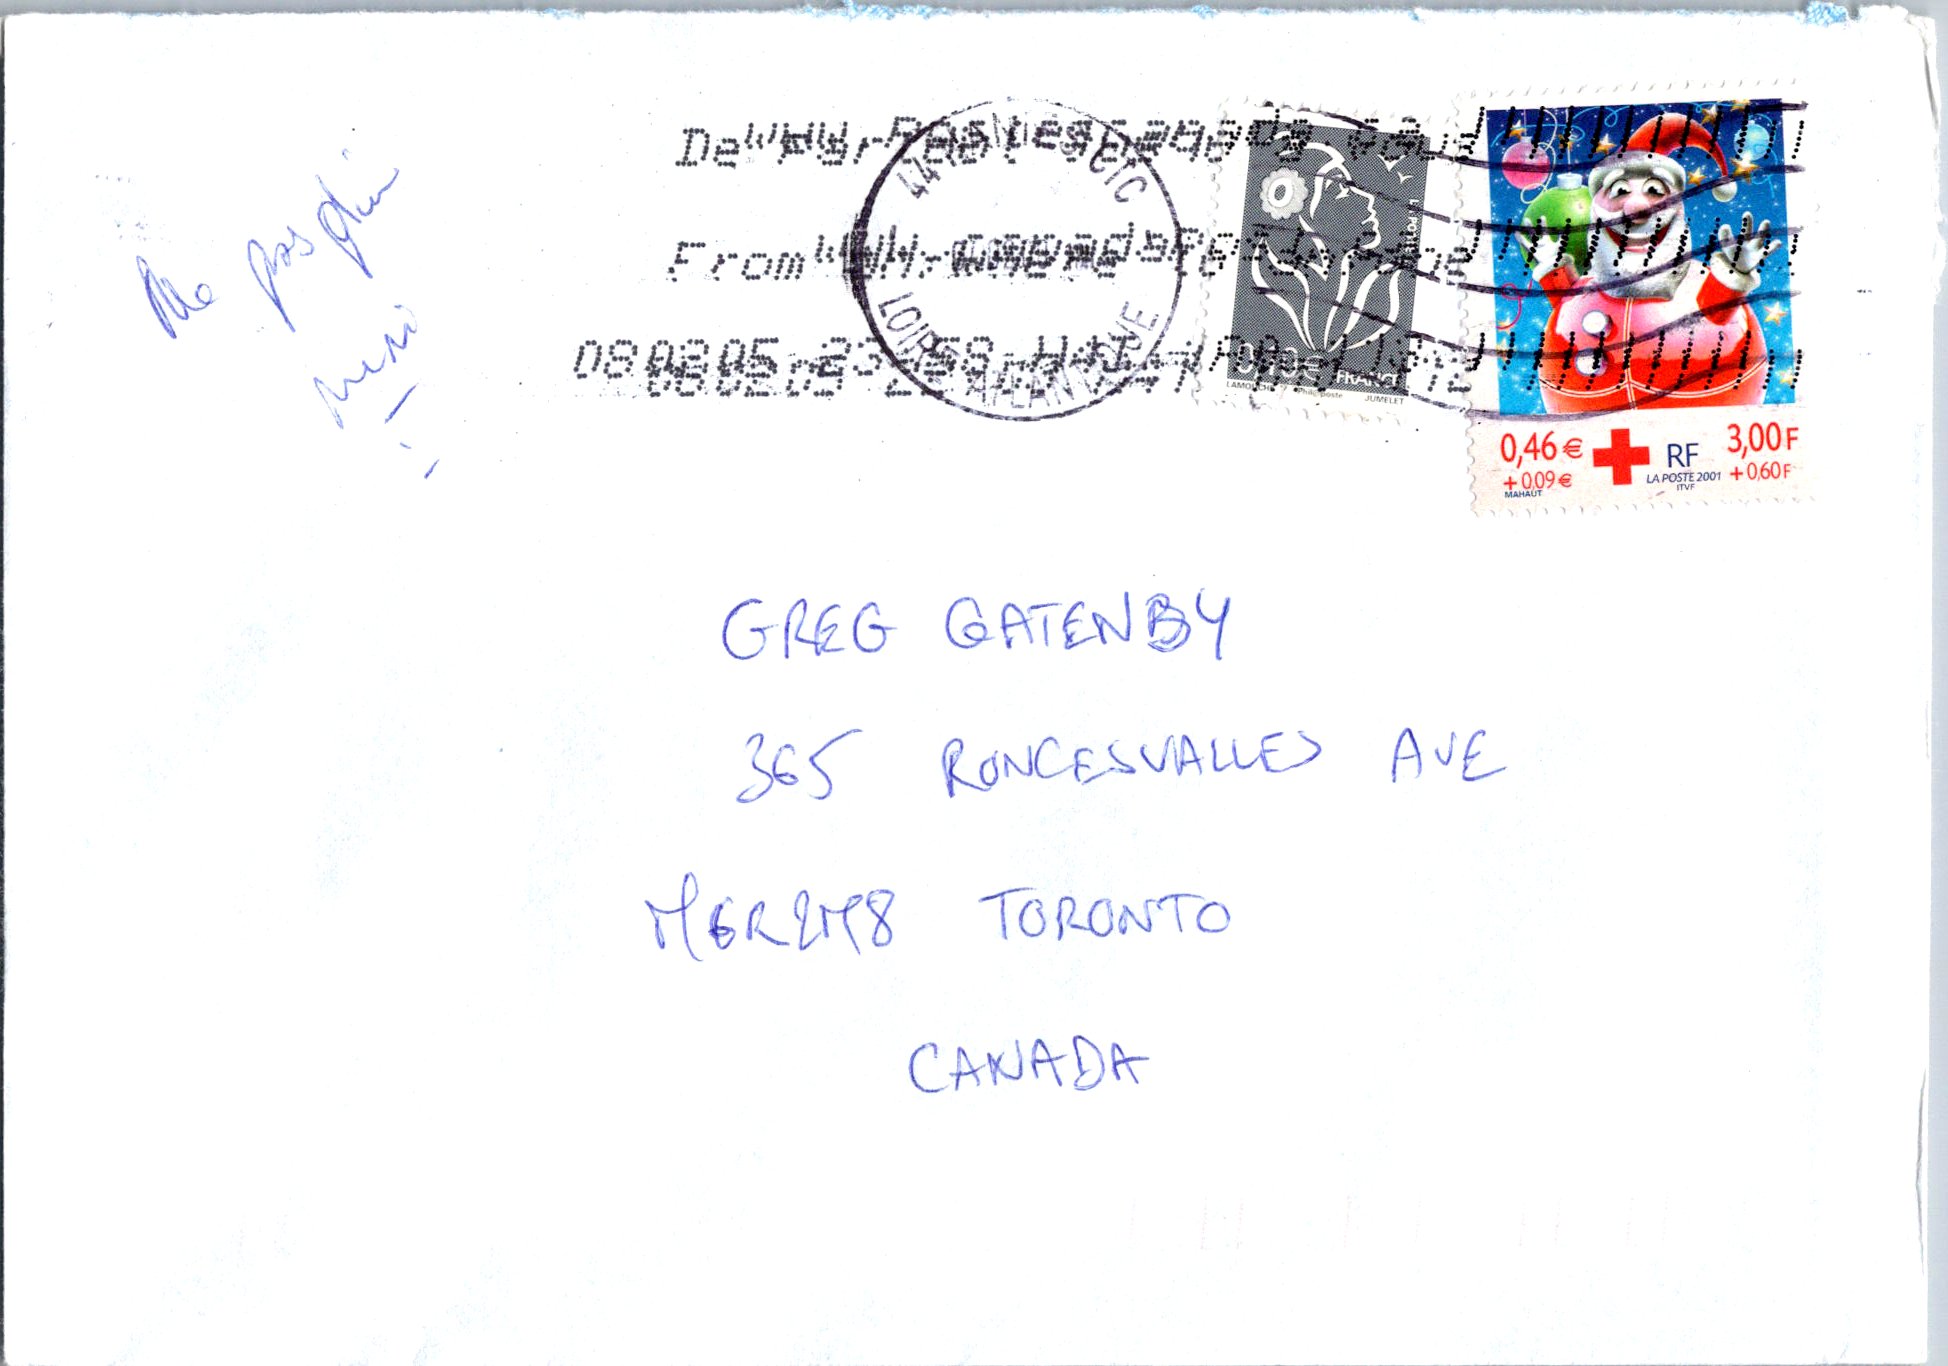 Ne pas plier
merci
44 CTC
LOIRE ATLANTIQUE
From
08.02.05
LA POSTE
FRANCE
LAMOUCHE Phil@poste JUMELET
0,46 € RF 3,00 F
+ 0,09 € LA POSTE 2001 + 0,60 F
MAHAUT ITVF
GREG GATENBY
365 RONCESVALLES AVE
M6R2M8 TORONTO
CANADA